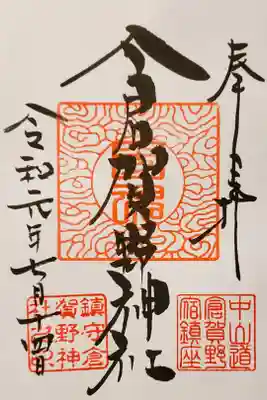 奉拝
倉賀野神社
令和元年七月十四日
中山道
倉賀野
宿鎮座
鎮守倉
賀野神